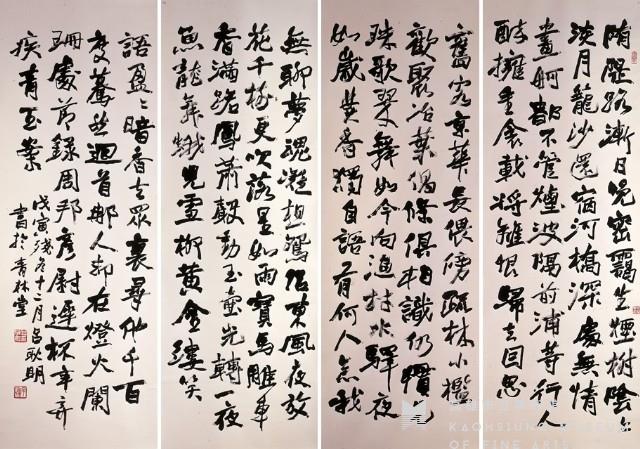 隋隄路漸日晚密靄生煙樹陰陰
淡月籠沙還宿河橋深處無情
畫舸都不管煙波隔前浦等行人
醉擁重衾載將離恨歸去回思
舊客京華長偎傍疏林小檻
歡聚冶葉倡條俱相識仍慣
珠歌翠舞如今向漁村水驛夜
如歲焚香獨自語有何人念我
無聊夢魂凝想鴛侶東風夜放
花千樹更吹落星如雨寶馬雕車
香滿路鳳簫聲動玉壺光轉一夜
魚龍舞蛾兒雪柳黃金縷笑
語盈盈暗香去眾裏尋他千百
度驀然迴首那人卻在燈火闌
珊處節錄周邦彥尉遲杯辛棄
疾青玉案
戊寅殘冬十二月呂耿明
書於青林堂
KAOHSIUNG MUSEUM
OF FINE ARTS